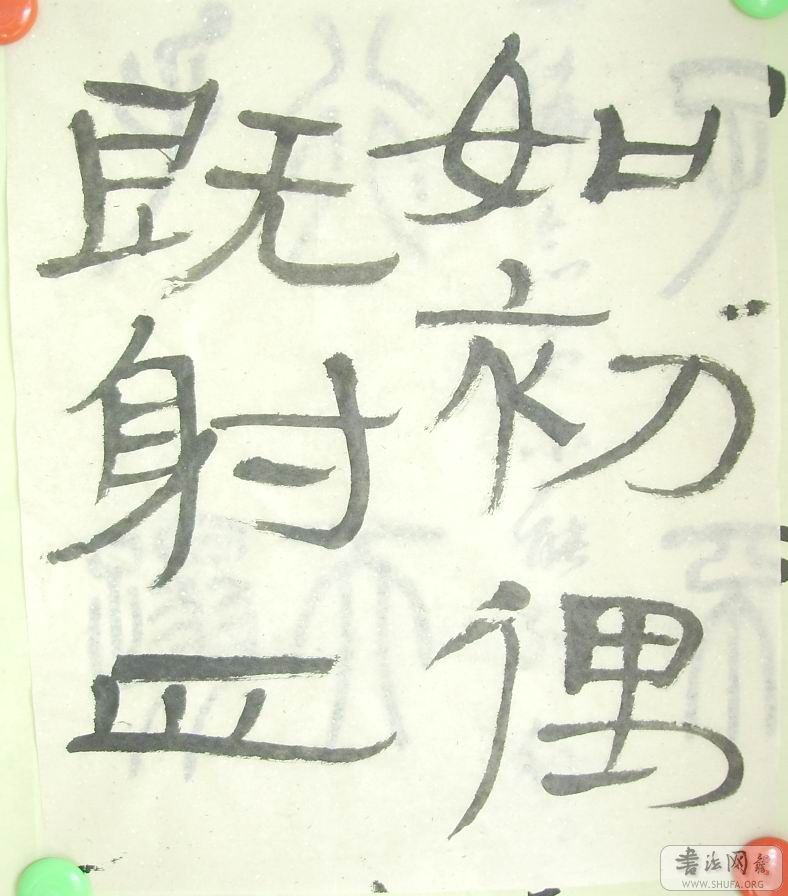 如初偶
既射
書法网
WWW.SHUFA.ORG